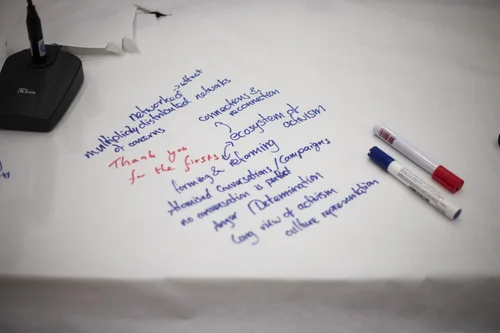 networked → effect
multiplicity distributed networks
of concerns
Thank you
for the firsts
connections &
reconnection
ecosystem of
activism
forming & reforming
Atomised Conversation / Campaigns
no conversation is perfect
Anger / Determination
Long view of activism
culture representation